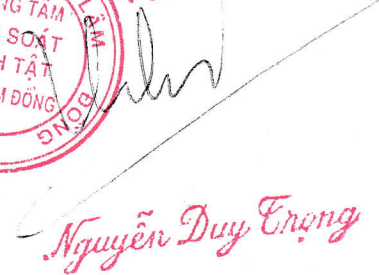 NG TÂM
SOÁT
H TẬT
M ĐỒNG
LÂM
ĐỒNG
Nguyễn Duy Trọng